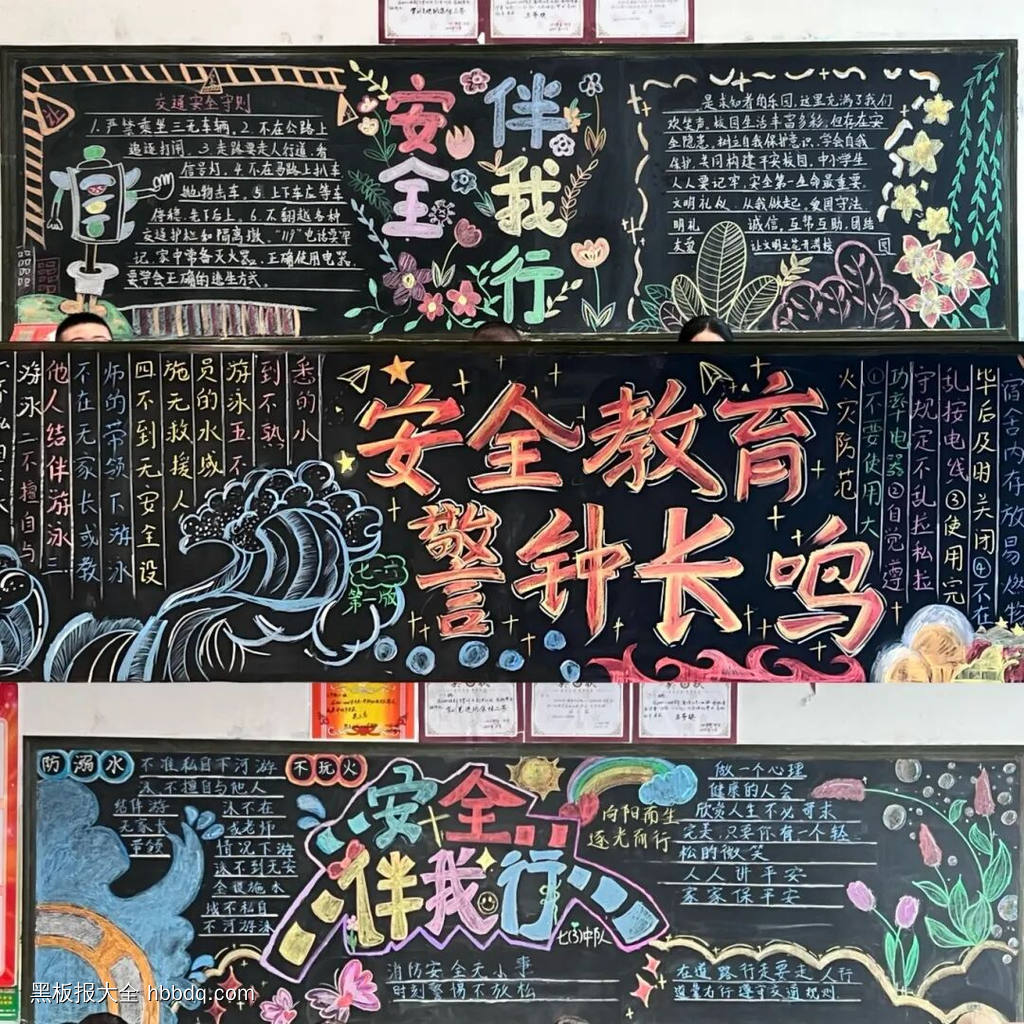 交通安全守则
1.严禁乘坐三无车辆。2.不在公路上
追逐打闹。3.走路要走人行道,看
信号灯。4.不在马路上扒车
抛物击车。5.上下车应等车
停稳,先下后上。6.不翻越各种
交通护栏和隔离墩。"119"电话要牢
记,家中常备灭火器。正确使用电器。
要学会正确的逃生方式。
安全
伴我行
是求知者的乐园,这里充满了我们
欢笑声,校园生活丰富多彩,但存在安
全隐患,树立自我保护意识,学会自我
保护,共同构建平安校园,中小学生
人人要记牢,安全第一生命最重要。
文明礼仪,从我做起,爱国守法,
明礼 诚信,互帮互助,团结
友爱 让文明之花开满校 园
他人结伴游泳三
不在无家长或教
师的带领下游泳
四不到无安全设
施无救援人
员的水域
游泳五不
到不熟
悉的水
游泳二不擅自与
安全教育
警钟长鸣
七一六
第一版
火灾防范
①不要使用大
功率电器②自觉遵
守规定不乱拉私拉
乱接电线③使用完
毕后及时关闭④不在
宿舍内存放易燃物
防溺水
不准私自下河游
泳不擅自与他人
结伴游 泳不在
无家长 或老师
带领 情况下游
泳不到无安
全设施水
域不私自
下河游泳
不玩火
安全
伴我行
七(3)中队
向阳而生
逐光而行
做一个心理
健康的人会
欣赏人生不必苛求
完美,只要你有一个轻
松的微笑
人人讲平安
家家保平安
消防安全无小事
时刻警惕不放松
在道路行走要走人行
道靠右行遵守交通规则
黑板报大全 hbbdq.com